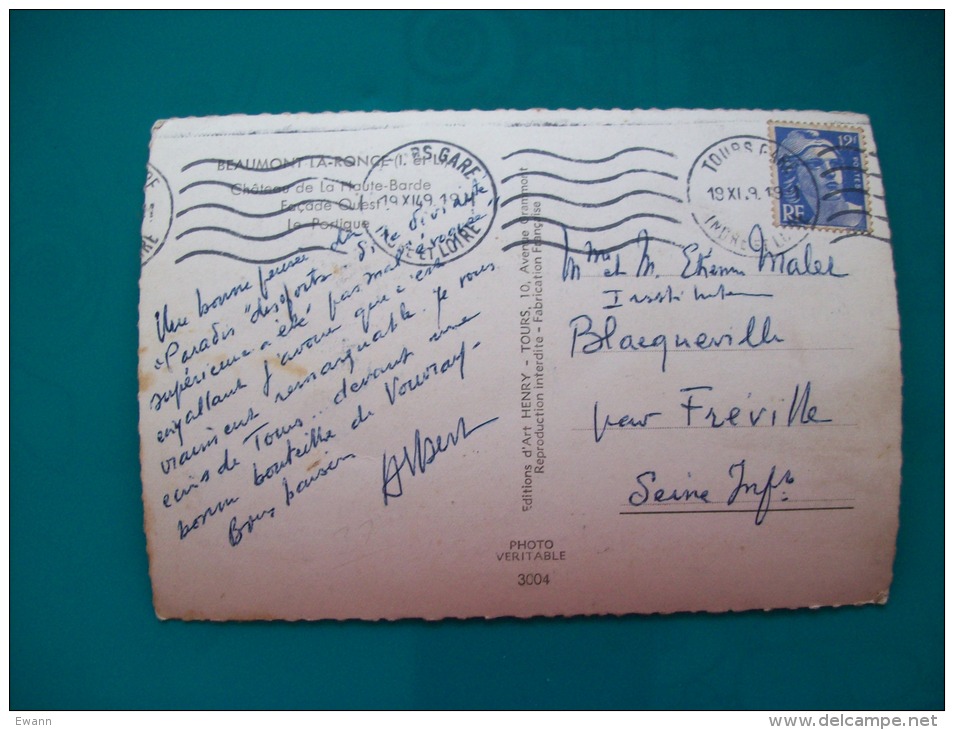 BEAUMONT-LA-RONCE (I. et L.)
Château de La Haute-Barde
Façade Ouest
Le Portique
TOURS GARE
19 XI 49
INDRE ET LOIRE
TOURS GARE
19 XI
INDRE ET LOIRE
12F
RF
Une bonne pensée du
"Paradis" des ports. Si le
supérieure a été pas mal
j'avoue que c'est
vraiment remarquable. Je vous
écris de Tours... devant une
bonne bouteille de Vouvray -
Bons baisers
Albert
Editions d'Art HENRY - TOURS, 10, Avenue Grammont
Reproduction interdite - Fabrication Française
PHOTO
VERITABLE
3004
Mme et M. Etienne Malet
Instituteur
Blacqueville
par Fréville
Seine Infre
Ewann
http://www.delcampe.net